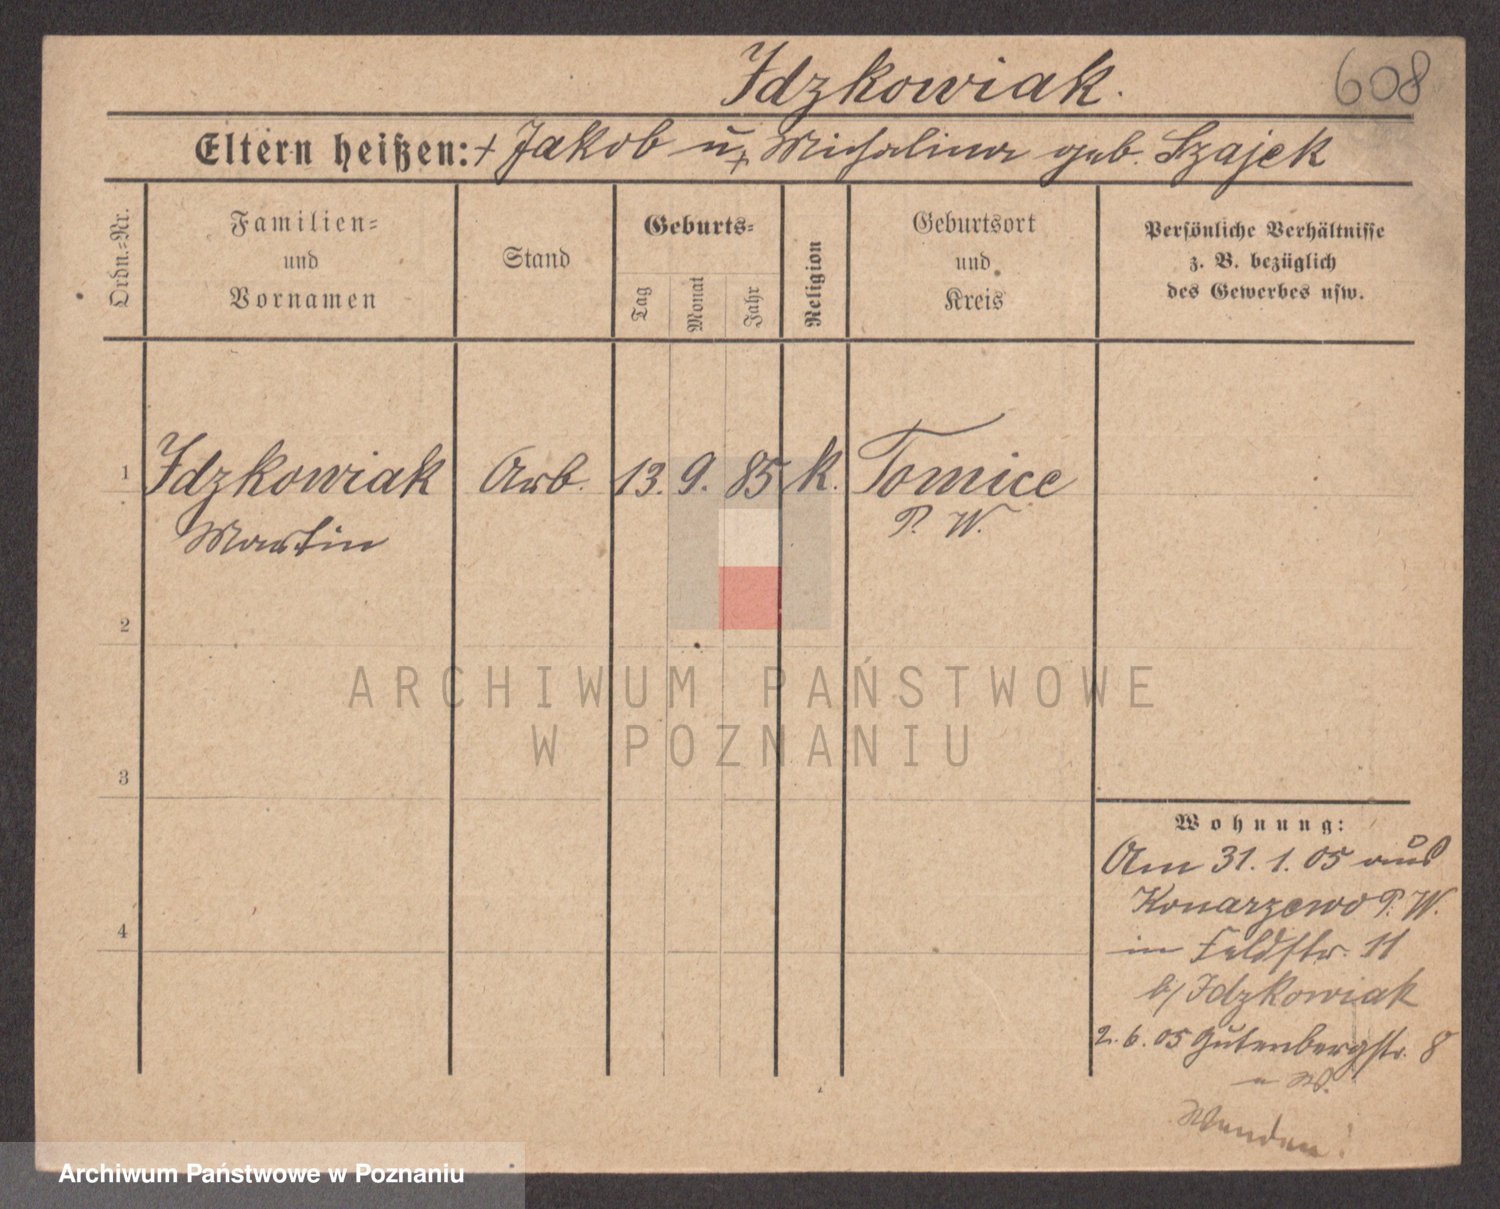 Idzkowiak.
608
Eltern heißen: + Jakob u + Michalina geb. Szajek
Ordn.-Nr.
Familien-
und
Vornamen
Stand
Geburts-
Tag
Monat
Jahr
Religion
Geburtsort
und
Kreis
Persönliche Verhältnisse
z. B. bezüglich
des Gewerbes usw.
1 Idzkowiak Arb. 13. 9. 85 k. Tomice
Martin P. W.
2
3
4
Wohnung:
Am 31. 1. 05 aus
Konarzewo P. W.
in Feldstr. 11
b/ Idzkowiak
2. 6. 05 Gutenbergstr. 8
Wenden!
ARCHIWUM PAŃSTWOWE
W POZNANIU
Archiwum Państwowe w Poznaniu